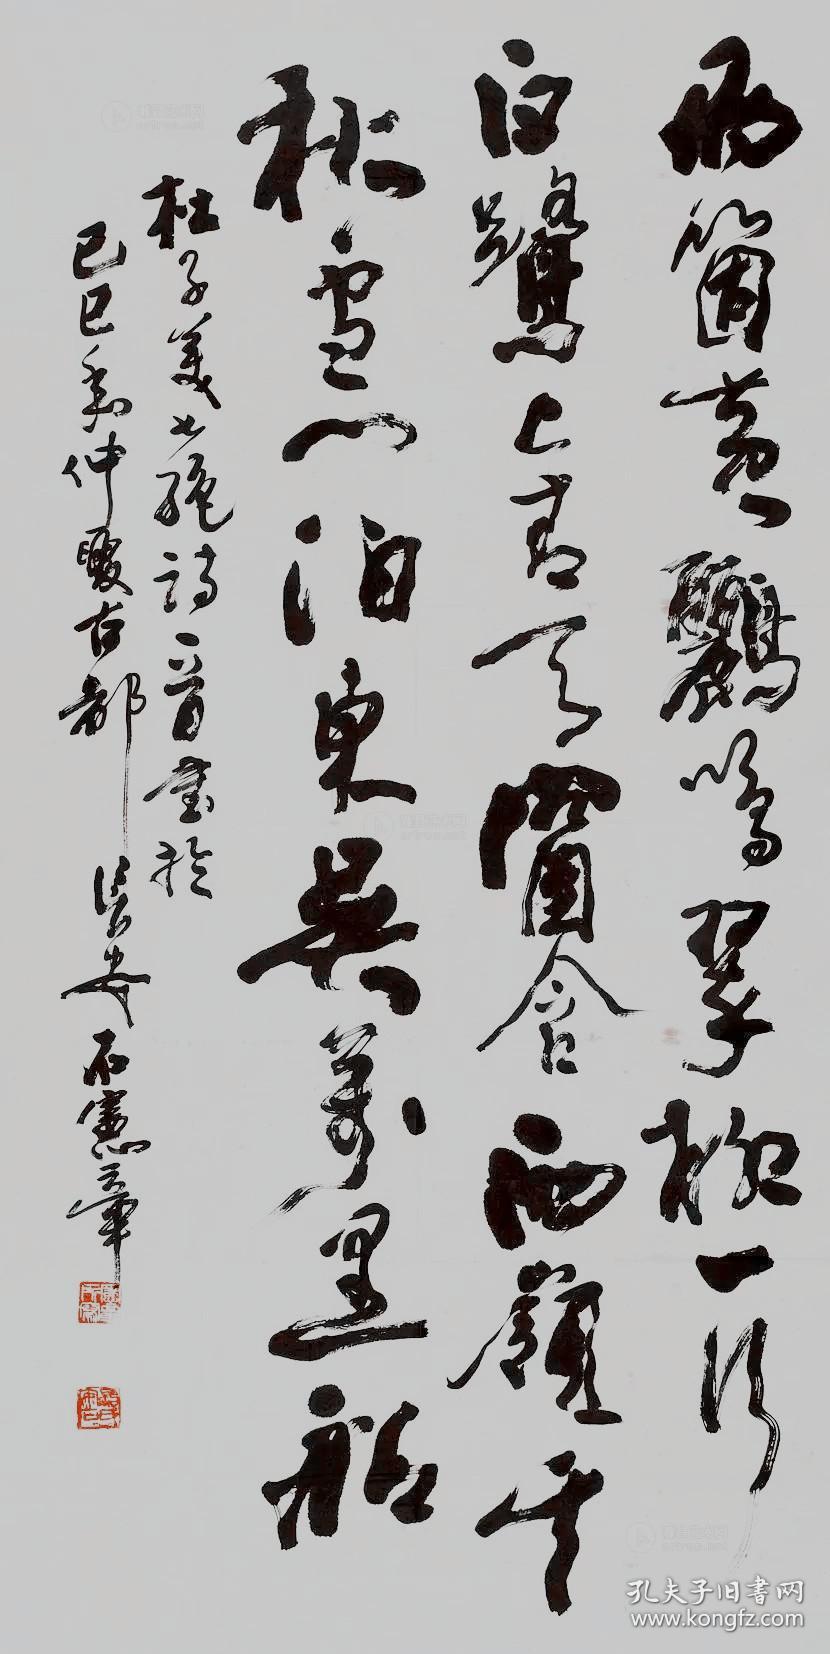 兩箇黃鸝鳴翠柳一行
白鷺上青天窗含西嶺千
秋雪門泊東吳萬里船
杜子美七絕詩一首書於
己巳年仲夏古都長安石憲章
孔夫子旧书网
www.kongfz.com